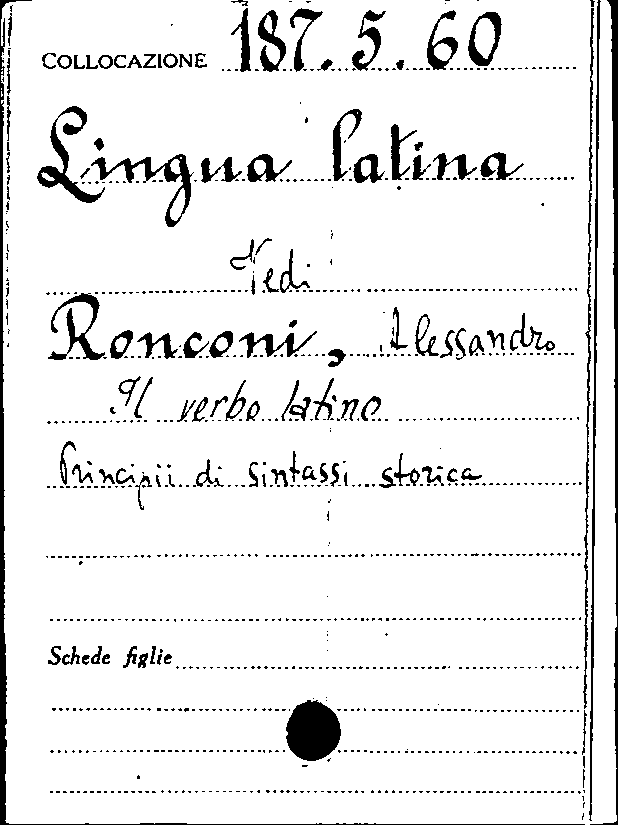 COLLOCAZIONE 187.5.60
Lingua latina
Vedi
Ronconi, Alessandro
Il verbo latino
Principii di sintassi storica
Schede figlie